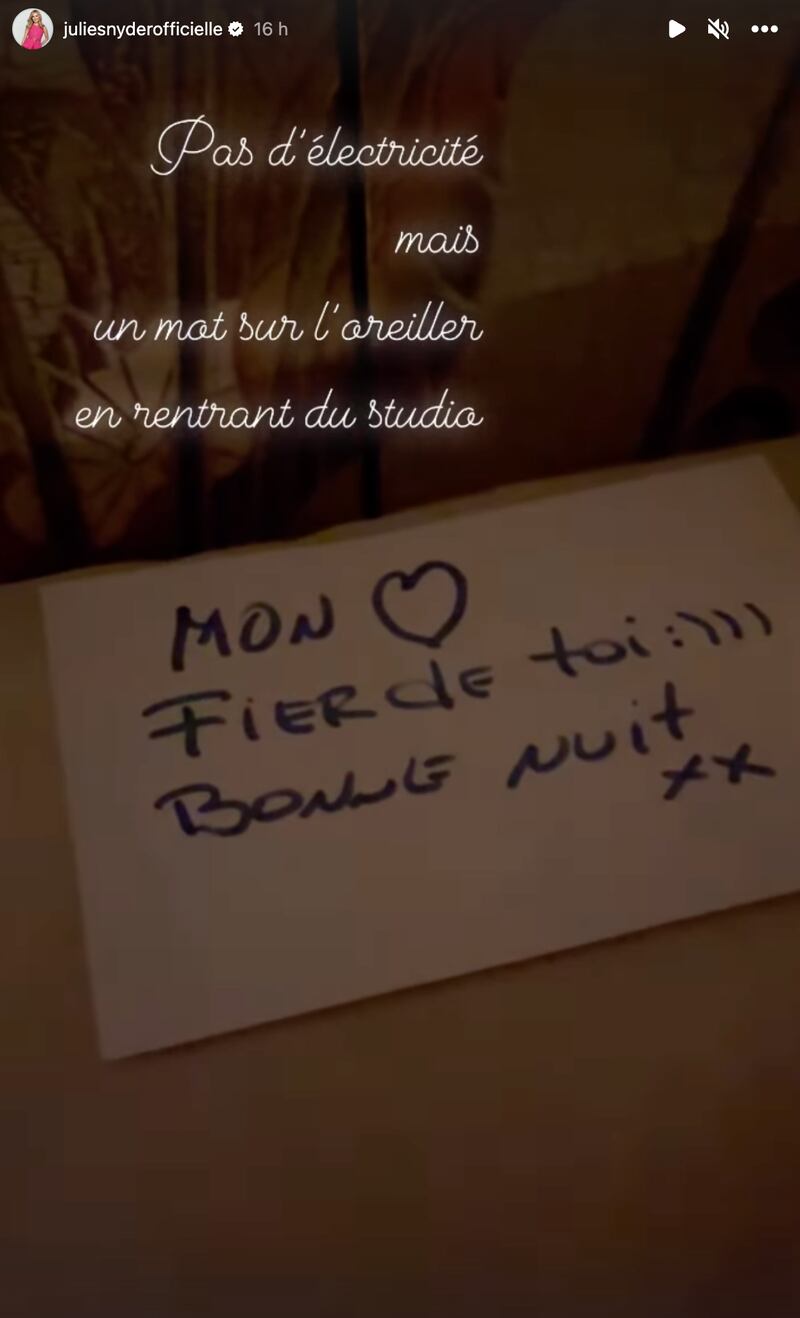 juliesnyderofficielle 16 h
Pas d'électricité
mais
un mot sur l'oreiller
en rentrant du studio
MON ♡
FiER de toi :))))
BONNE NUit
xx